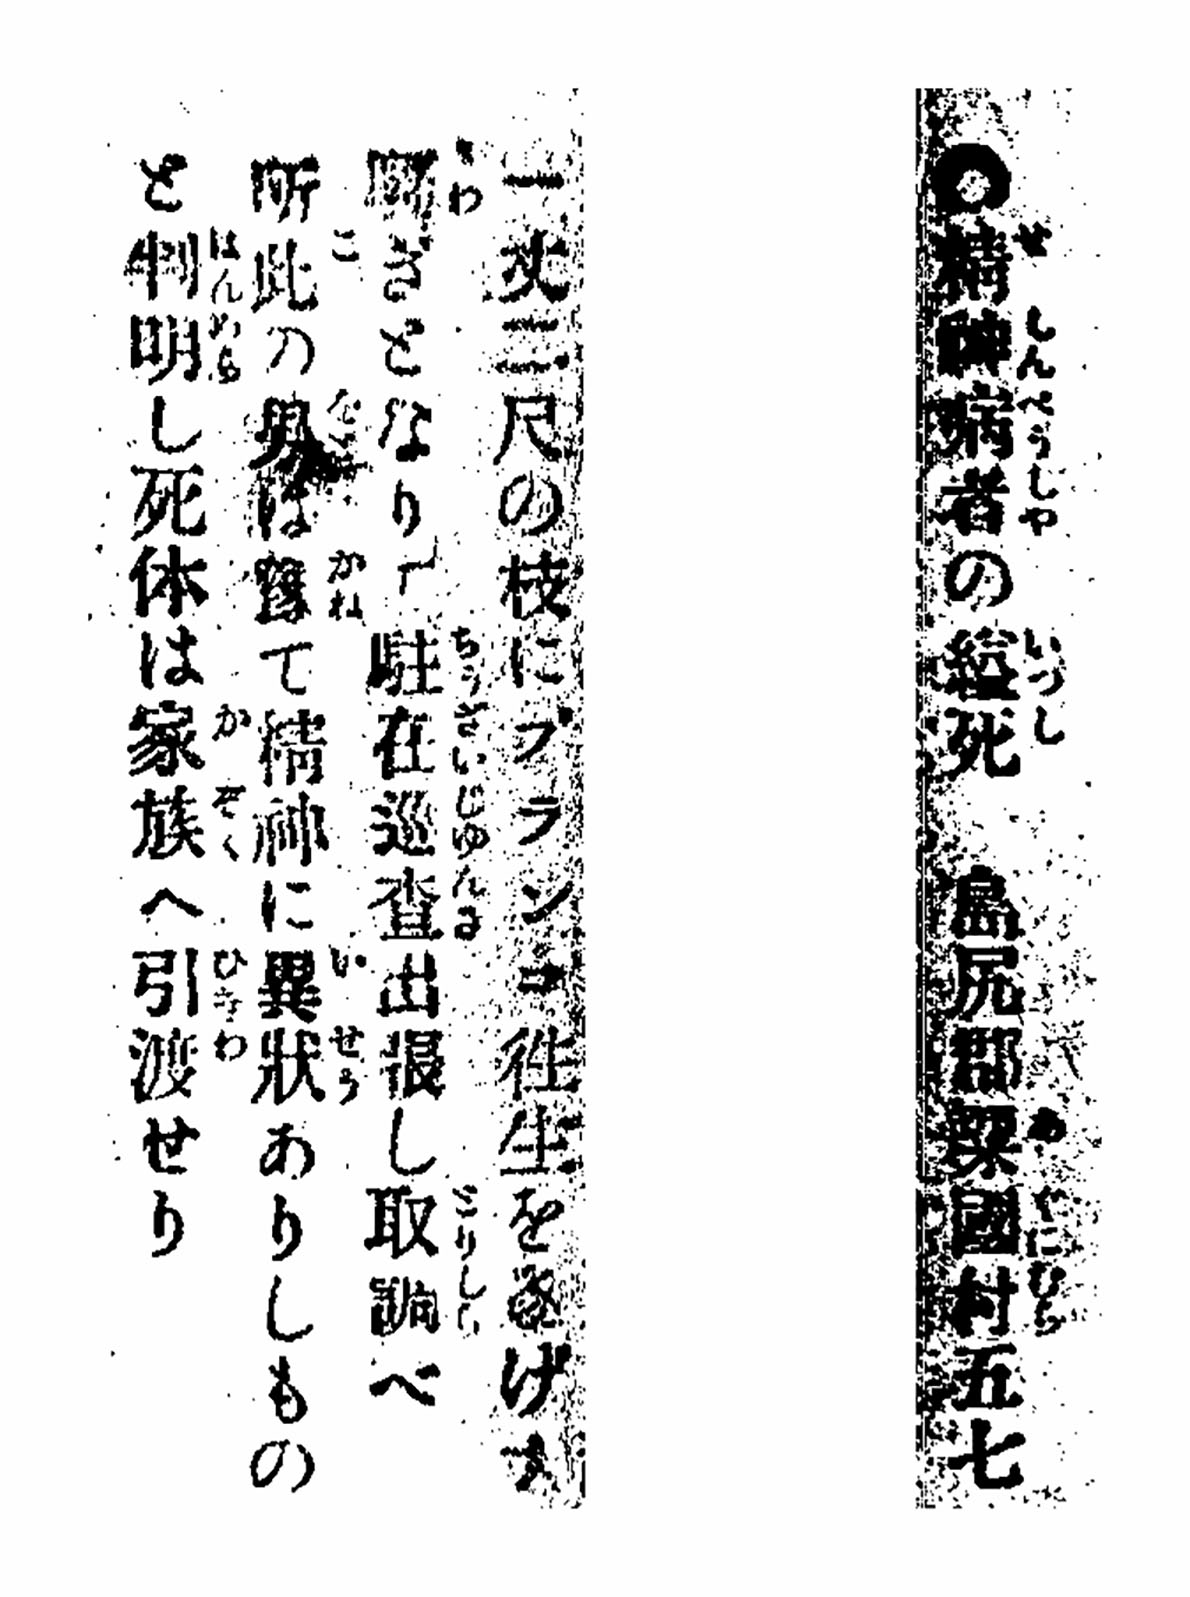 ●精神病者の縊死　島尻郡粟國村五七
一丈二尺の枝にブランコ往生を遂げ大
騒ぎとなり　駐在巡査出張し取調べ
所此の男は豫て精神に異狀ありしもの
と判明し死体は家族へ引渡せり